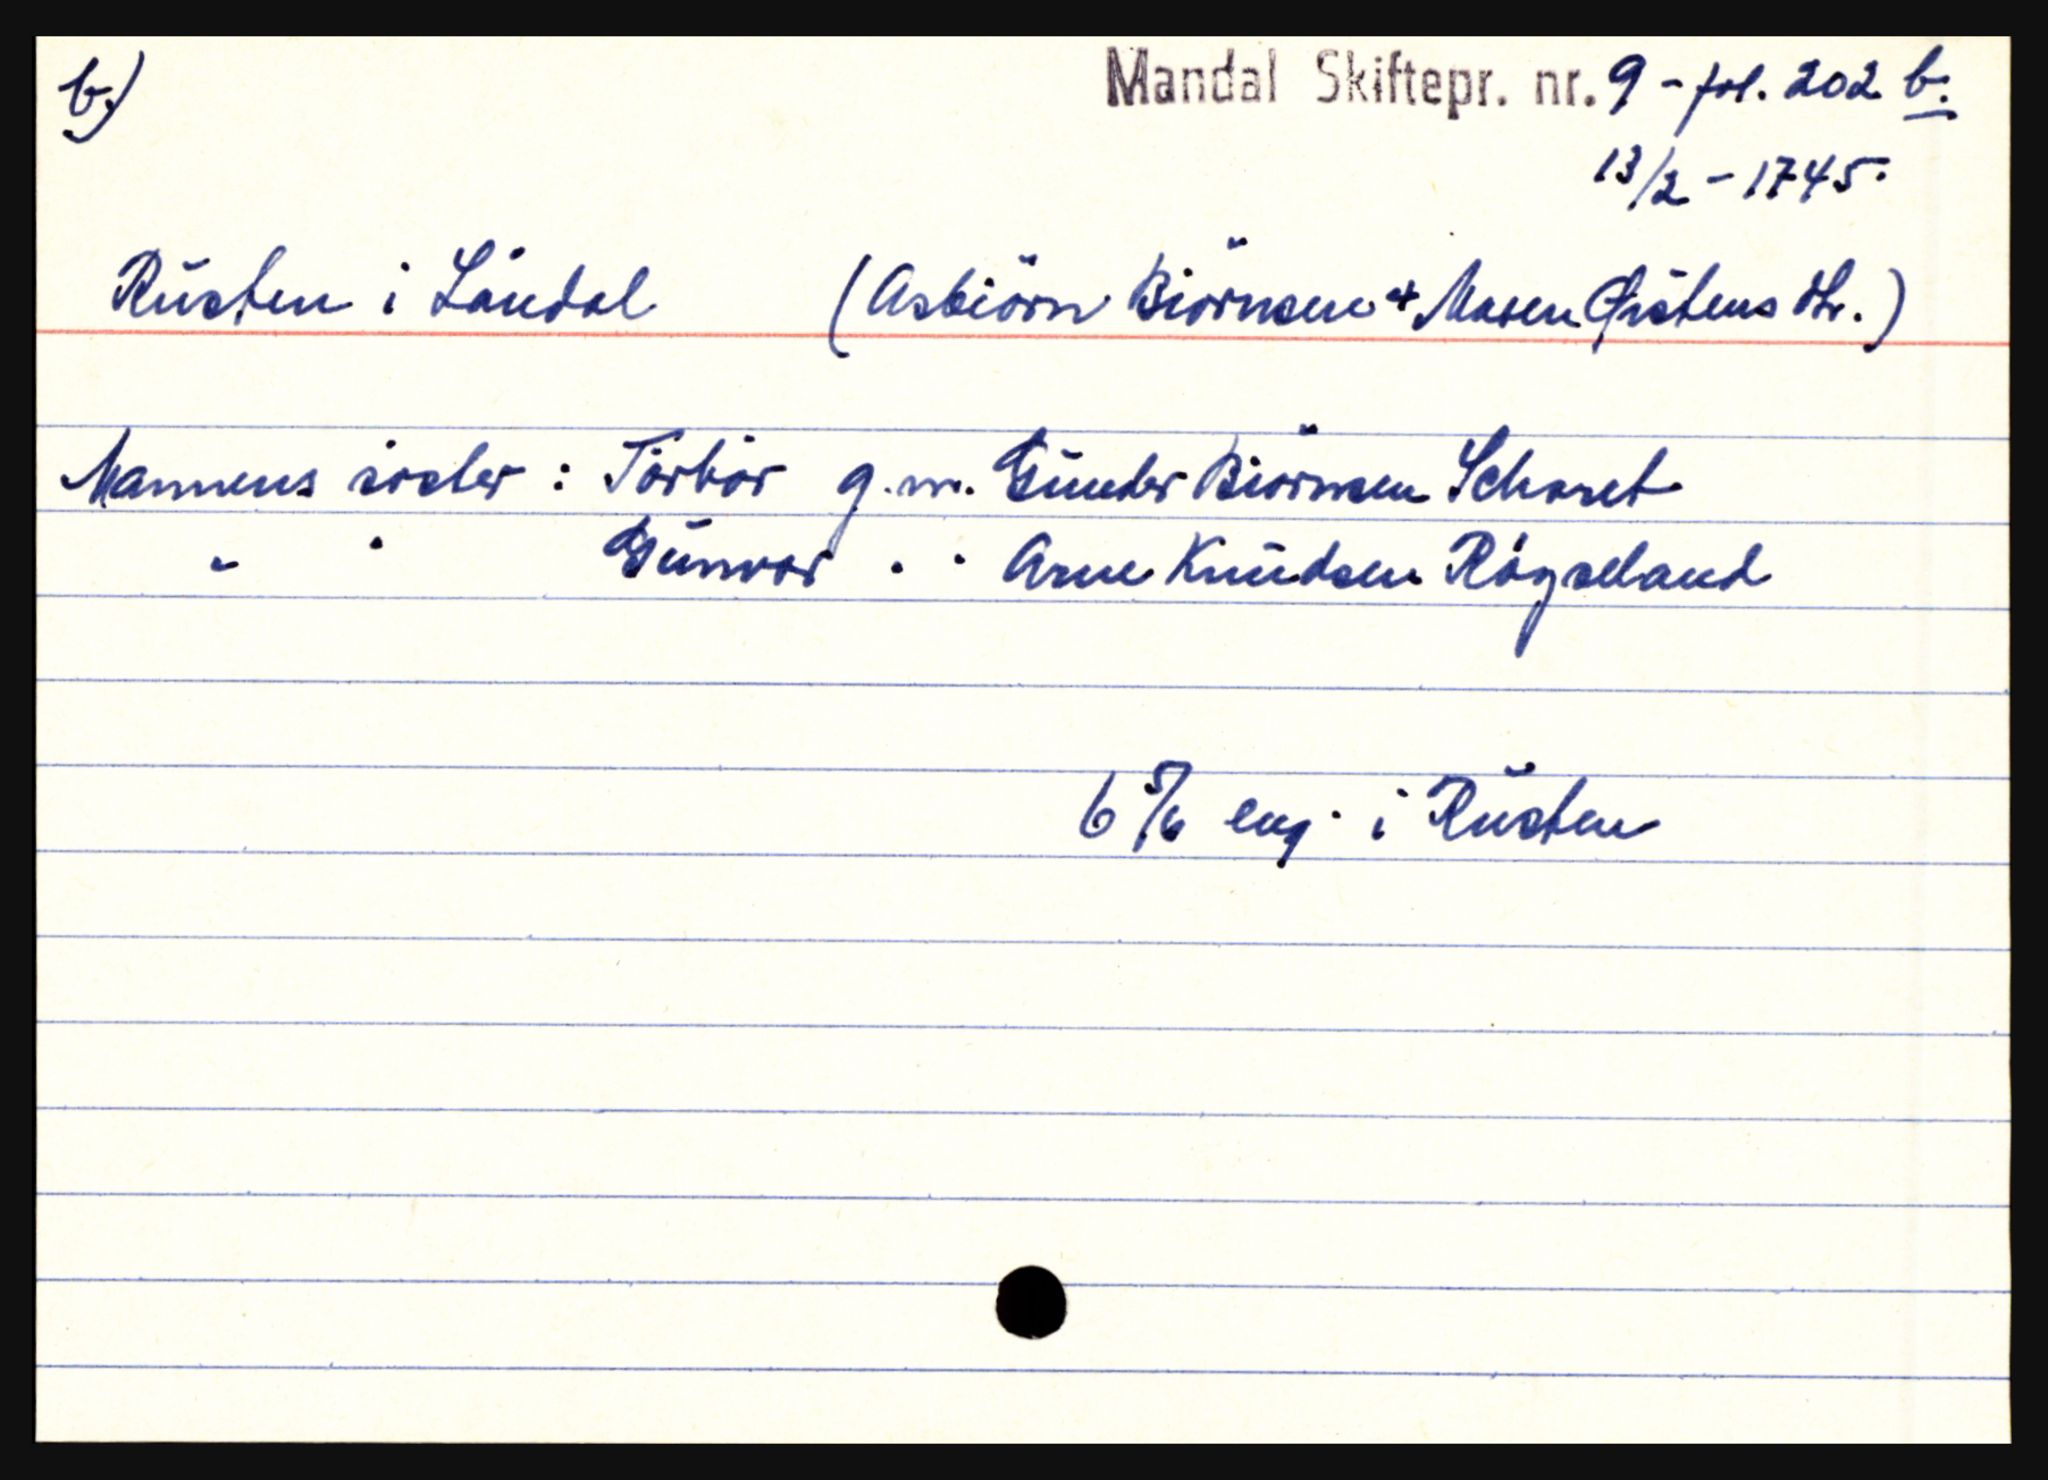 b)
Mandal Skiftepr. nr. 9 - fol. 202 b.
13/2 - 1745.
Rústen i Láudal (Asbiörn Biörnsen & Maren Gistens dtr.)
Mannens søster : Torbor g.m. Gúnder Biörnsen
" " Gúnvor " " Arne Knúdsen Röyseland
6 5/6 eng. i Rústen